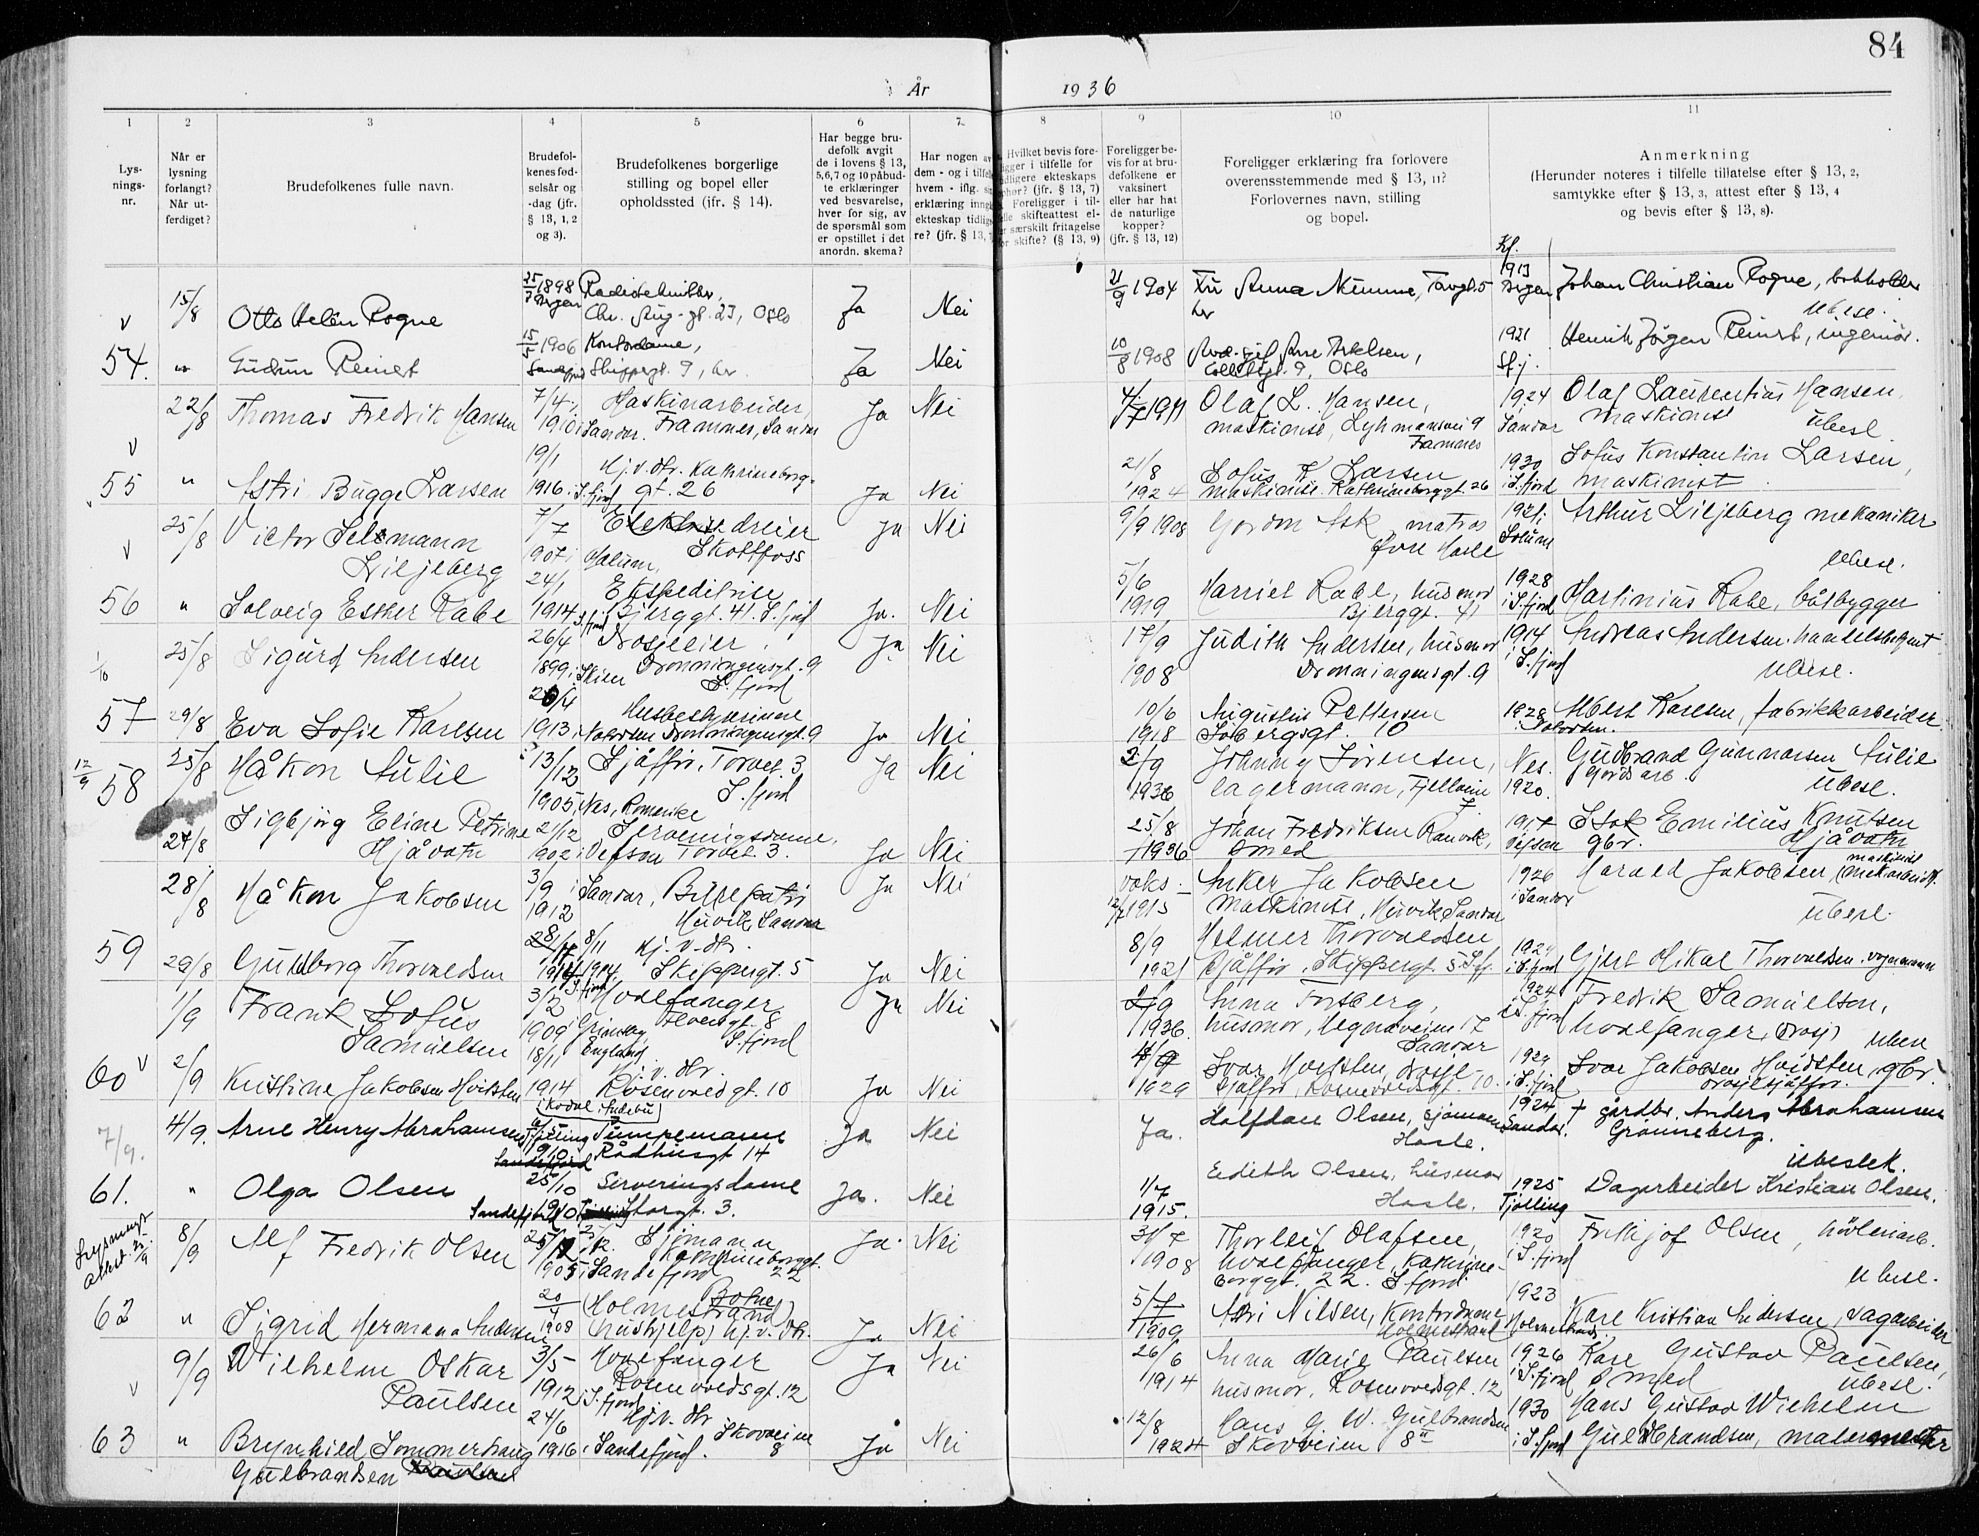 84
År 1936
1 2 3 4 5 6 7 8 9 10 11
Lys-
nings-
nr.
Når er
lysning
forlangt?
Når ut-
ferdiget?
Brudefolkenes fulle navn.
Brudefol-
kenes fød-
selsår og
-dag (jfr.
§ 13, 1, 2
og 3).
Brudefolkenes borgerlige
stilling og bopel eller
opholdssted (jfr. § 14).
Har begge bru-
defolk avgit
de i lovens § 13,
5, 6, 7 og 10 påbud-
te erklæringer
ved besvarelse,
hver for sig, av
de spørsmål som
er opstillet i det
anordn. skema?
Har nogen av
dem - og i tilfelle
hvem - iflg.
erklæring inngått
ekteskap tidlige-
re? (jfr. § 13, 7)
Hvilket bevis fore-
ligger i tilfelle for
tidligere ekteskaps
ophør? (jfr. § 13, 7)
Foreligger i til-
felle skifteattest el-
ler særskilt fritagelse
for skifte? (§ 13, 9)
Foreligger be-
vis for at bru-
defolkene er
vaksinert
eller har hat
de naturlige
kopper?
(jfr. § 13, 12)
Foreligger erklæring fra forlovere
overensstemmende med § 13, 11?
Forlovernes navn, stilling
og bopel.
Anmerkning
(Herunder noteres i tilfelle tillatelse efter § 13, 2,
samtykke efter § 13, 3, attest efter § 13, 4
og bevis efter § 13, 8).
Kf.
v 15/8 Otto Rogne 25/7 1898 Bergen
Chr. Aug. gt. 23, Oslo Ja Nei 21/9 1904 Fru Anna Nimme, Torvgt. 5
her 1913 Bergen Johan Christian Rogne, bokholder
ubesl.
54. " Gudrun Reinert 15/5 1906 Sandefjord Kontordame,
Skippergt. 9, her Ja Nei 10/8 1908
Oslo 1921 Sfj. Henrik Jørgen Reinert, ingeniør
v 22/8 Thomas Fredrik Hansen 7/4 1910 i Sandar. Maskinarbeider,
Framnes, Sandar Ja Nei 4/7 1911 Olaf L. Hansen,
maskinist, Framnes 1924 Sandar Olaf Laurentius Hansen
maskinist ubesl.
55 " Astri Bugge Larsen 19/1 1916 i S.fjord Hj. v. dtr. Kathrineborg-
gt. 26 Ja Nei 21/8 1924 Sofus K Larsen
maskinist Kathrineborggt. 26 1930 i S.fjord Sofus Konstantin Larsen,
maskinist
v 25/8 Victor Selsmann
Liljeberg 7/7 1907 i Solum, dreier
Skotfoss Ja Nei 9/9 1908 Gordon Ask matros
Øvre Hasle 1921 i Solum Arthur Liljeberg mekaniker
ubesl.
56 " Solveig Esther Rabe 24/1 1914 S.fjord Ekspeditrise
Bjerggt. 41. S.fjord Ja. Nei 5/6 1919 Harriet Rabe, husmor
Bjerggt. 41 1928 i S.fjord Martinius Rabe, båtbygger
1/10 25/8 Sigurd Andersen 26/4 1899 i Skien Drosjeeier.
Dronningensgt. 9
S.fjord Ja Nei 17/9 1908 Judith Andersen, husmor
Dronningensgt. 9 1914 i S.fjord Andreas Andersen. handelsbetjent
ubesl.
57 29/8 Eva Sofie Karlsen 1913 i Husbestyrerinne
Dronningensgt. 9 Ja Nei 10/6 1918 Augustus Pettersen
Solbergsgt. 10 1928 Albert Karlsen, fabrikkarbeider
12/9 58 25/8 Håkon Aulie 13/12 1905 i Nes, Romerike Sjåfør, Torvet. 3
S.fjord Ja Nei 2/9 1936 Johnny Sørensen,
lagermann, Fjellveien
7. Nes. 1920. Gudbrand Gunnarsen Aulie
gårdsarb. ubesl.
27/8 Sigbjørg Eline Petrine
Hjåvatn 21/12 1902 i Vefsen Serveringsdame,
Torvet 3. Ja Nei 25/8 1936 Johan Fredriksen Ranvik,
smed 1917 Vefsen Isak Emilius Knutsen
gbr. Hjåvatn
28/8 Håkon Jakobsen 3/9 1912 i Sandar, Huvik, Sandar Ja Nei vaks. 1915 Anker Jakobsen
maskinist, Huvik, Sandar 1926 i Sandar Harald Jakobsen, maskinist
ubesl.
59 29/8 Gudborg Thorvaldsen 8/11 1914 S.fjord Hj. v. dtr.
Skippergt. 5 Ja Nei 8/9 1921 Helmer Thorvaldsen
Sjåfør, Skippergt. 5. S.fj. 1929 i S.fjord Gjert Mikal Thorvaldsen. vognmann
1/9 Frank Sofus
Samuelsen 3/2 1909 i Grimsby England Hvalfanger
8
S.fjord Ja Nei 1936 Anna Forsberg,
husmor, 17
Sandar 1924 i S.fjord Fredrik Samuelson,
hvalfanger, ubesl
60 v 2/9 Kristine Jakobsen Hvidsten 18/11 1914 Hj. v. dtr.
Rosenvoldgt. 10 Ja Nei 1929 Ivar Hvidsten, drosje-
sjåfør, Rosenvoldsgt. 10. 1929 i S.fjord Ivar Jakobsen Hvidsten, gbr.
drosjesjåfør.
7/9. 4/9. Arne Henry Abrahamsen (Kodal i Andebu)
Tjølling 1910 Tømmermann
Rådhusgt 14 Ja Nei Ja. Halfdan Olsen, sjømann
Hasle. 1924 Sandar. † gårdbr. Anders Abrahamsen
Grønneberg.
ubeslek.
61. " Olga Olsen 25/10 1910 Sandefjord Serveringsdame
Storgt. 3. Ja. Nei 1/7 1915. Edith Olsen, husmor
Hasle. 1925 Tjølling Dagarbeider Kristian Olsen.
8/9 Alf Fredrik Olsen 1905 i Sandefjord Sjømann
Kathrineborggt.
22 Ja. Nei 31/7 1908 Thorleif Olafsen,
hvalfanger, Kathrine-
borggt. 22. S.fjord. 1920 i S.fjord Frithjof Olsen, høvleriarb.
ubesl.
62 " Sigrid Hermana Andersen 20/4 1908 (Holmestrand) Botne
hushjelp, hj. v. dtr. Ja Nei 5/7 1909 Astri Nilsen, Kontordame
Holmestrand 1923 Holmestrand Karl Kristian Andersen, dagarbeider
v 9/9 Wilhelm Oskar
Paulsen 3/5 1912 i S.fjord Hvalfanger
Rosenvoldsgt. 12 Ja Nei 26/6 1914 Anna Marie Paulsen
husmor, Rosenvoldsgt. 12 1926 i S.fjord Karl Gustav Paulsen,
smed ubesl.
63 " Brynhild Sommerhaug
Gulbrandsen 24/6 1916 i Sandefjord. Hj. v. dtr
Skovveien
8 Ja Nei 12/8 1924 Hans G. W. Gulbrandsen
Skovveien 8 1930 i S.fjord Hans Gustav Wilhelm
Guldbrandsen, malermester